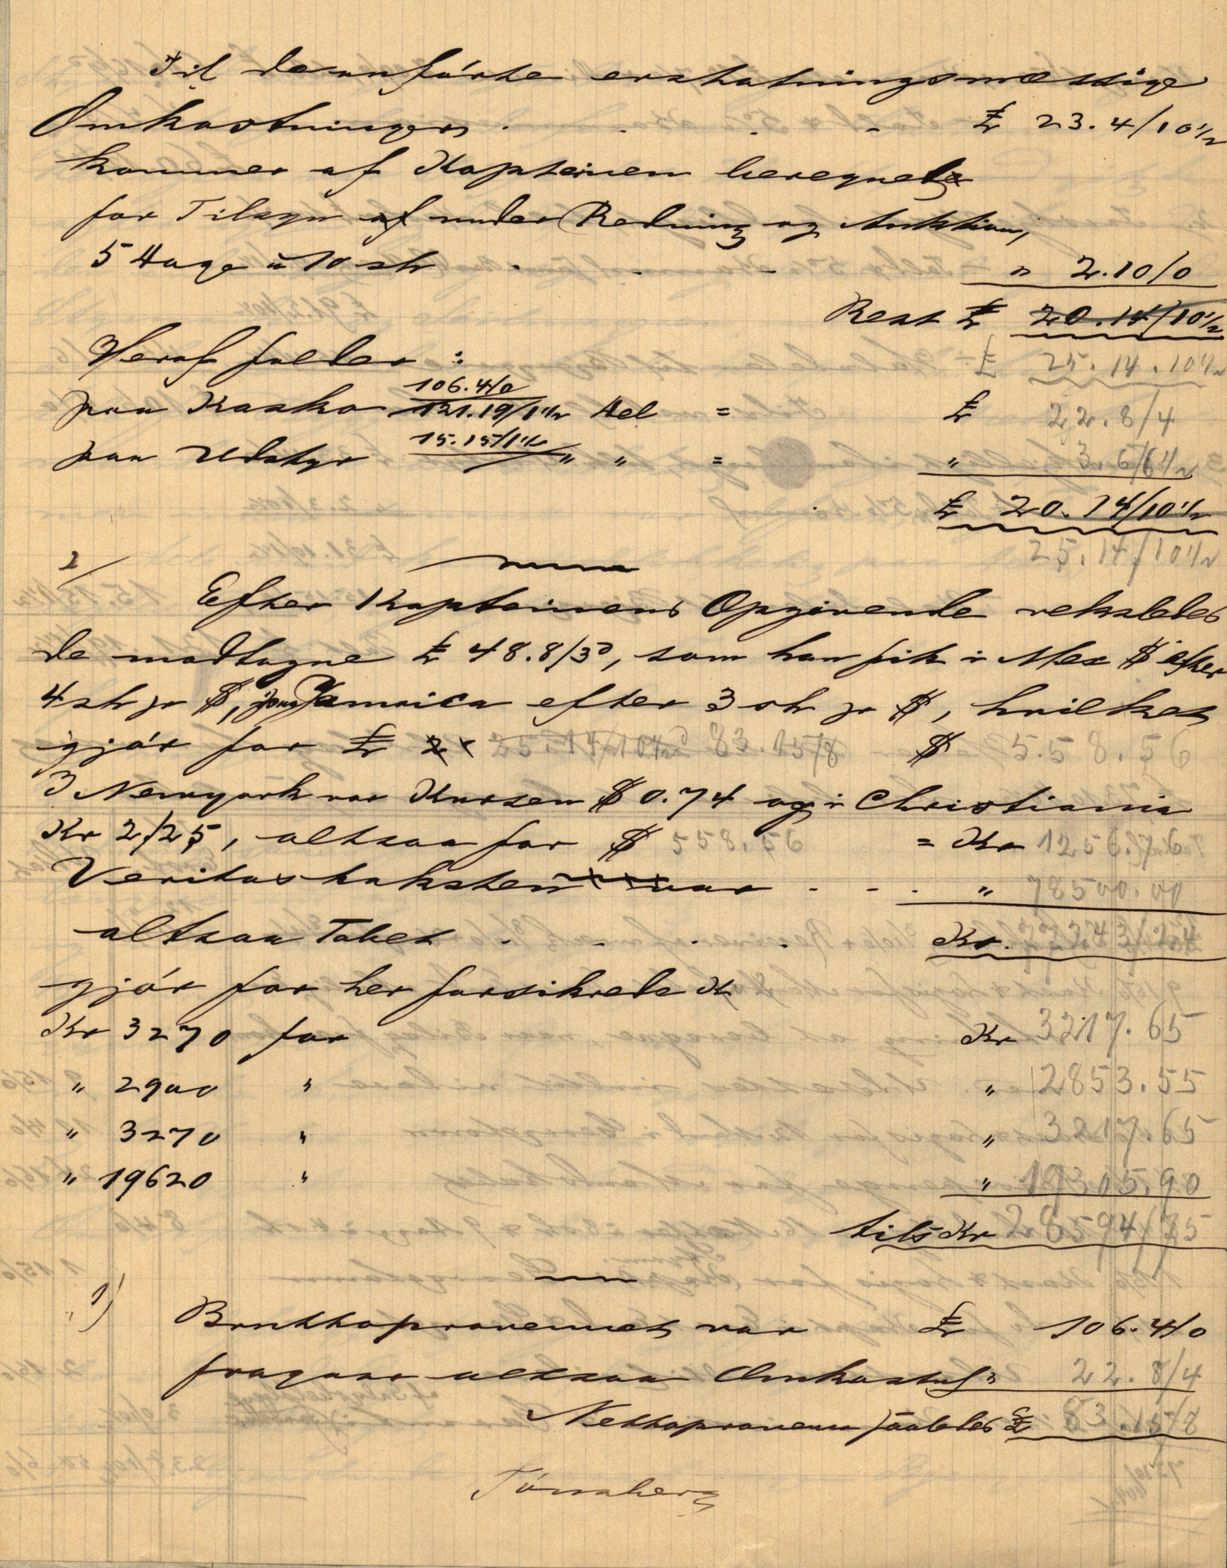 Til deanførte erstatningsmæssige
Omkostninger . . . . £ 23.4/10½
kommer af Kapteinen beregnet
for Tilsyn under Redning og Auktion,
5 Dage à 10 sh . . . " 2.10/0
Rest £ 20.14/10½
Heraf falder : £ 25.14.10½
106.4/0
paa Kasko 121.19/1½ Del = £ 22.8/4
15.15/1½
paa Udstyr " " = " 3.6/6½
£ 20.14/10½
25.14/10½
2/
Efter Kapteinens Opgivende
de modtagne £ 48.8/3ᵈ, som han fik i Mex $ efter
4 sh pr $, paa Jamaica efter 3 sh pr $, hvilket
gjør for £ 25.14/10½ᵈ 83.15/8 $ 5.58.56
I Newyork var Kursen $ 0.74 og i Christiania
Kr 2/25, altsaa for $ 558.56 = Kr 1256.76
Veritastaksten var . - . " 78500.00
altsaa Tabet . . . . Kr. 77243/24
gjør for her forsikrede K
Kr 3270 for Kr 3217.65
" 2900 " " 2853.55
" 3270 " " 3217.65
" 19620 " " 19305.90
tils Kr 28594/75
1)
Bruttoprovenuet var £ 106.4/0
fragaar altsaa Omkostn. 22.8/4
Nettoprovenu saaledes £ 83.15/8
Tønsberg